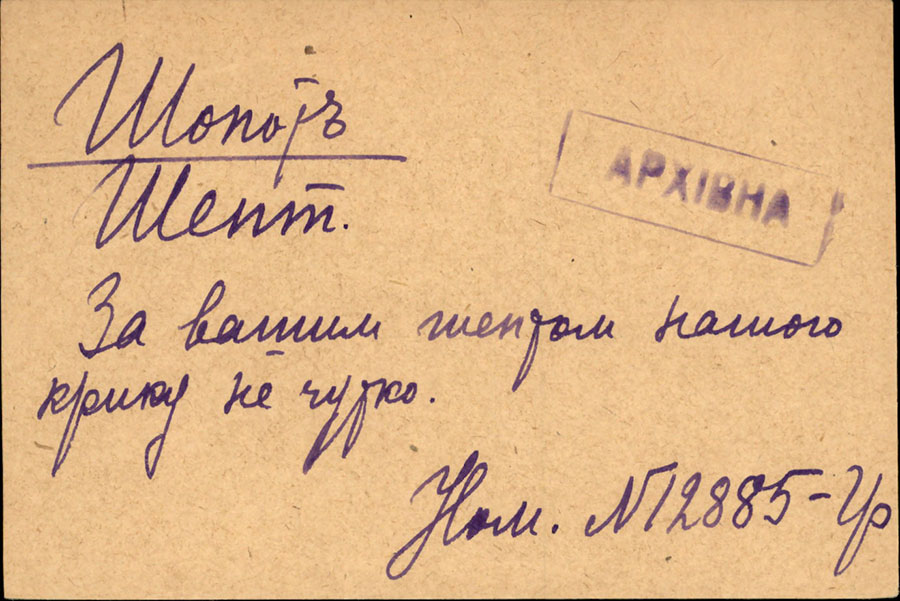 Шопотъ
АРХІВНА
Шепт.
За вашим шептом нашого
крику не чутко.
Ном. №12885-Ур